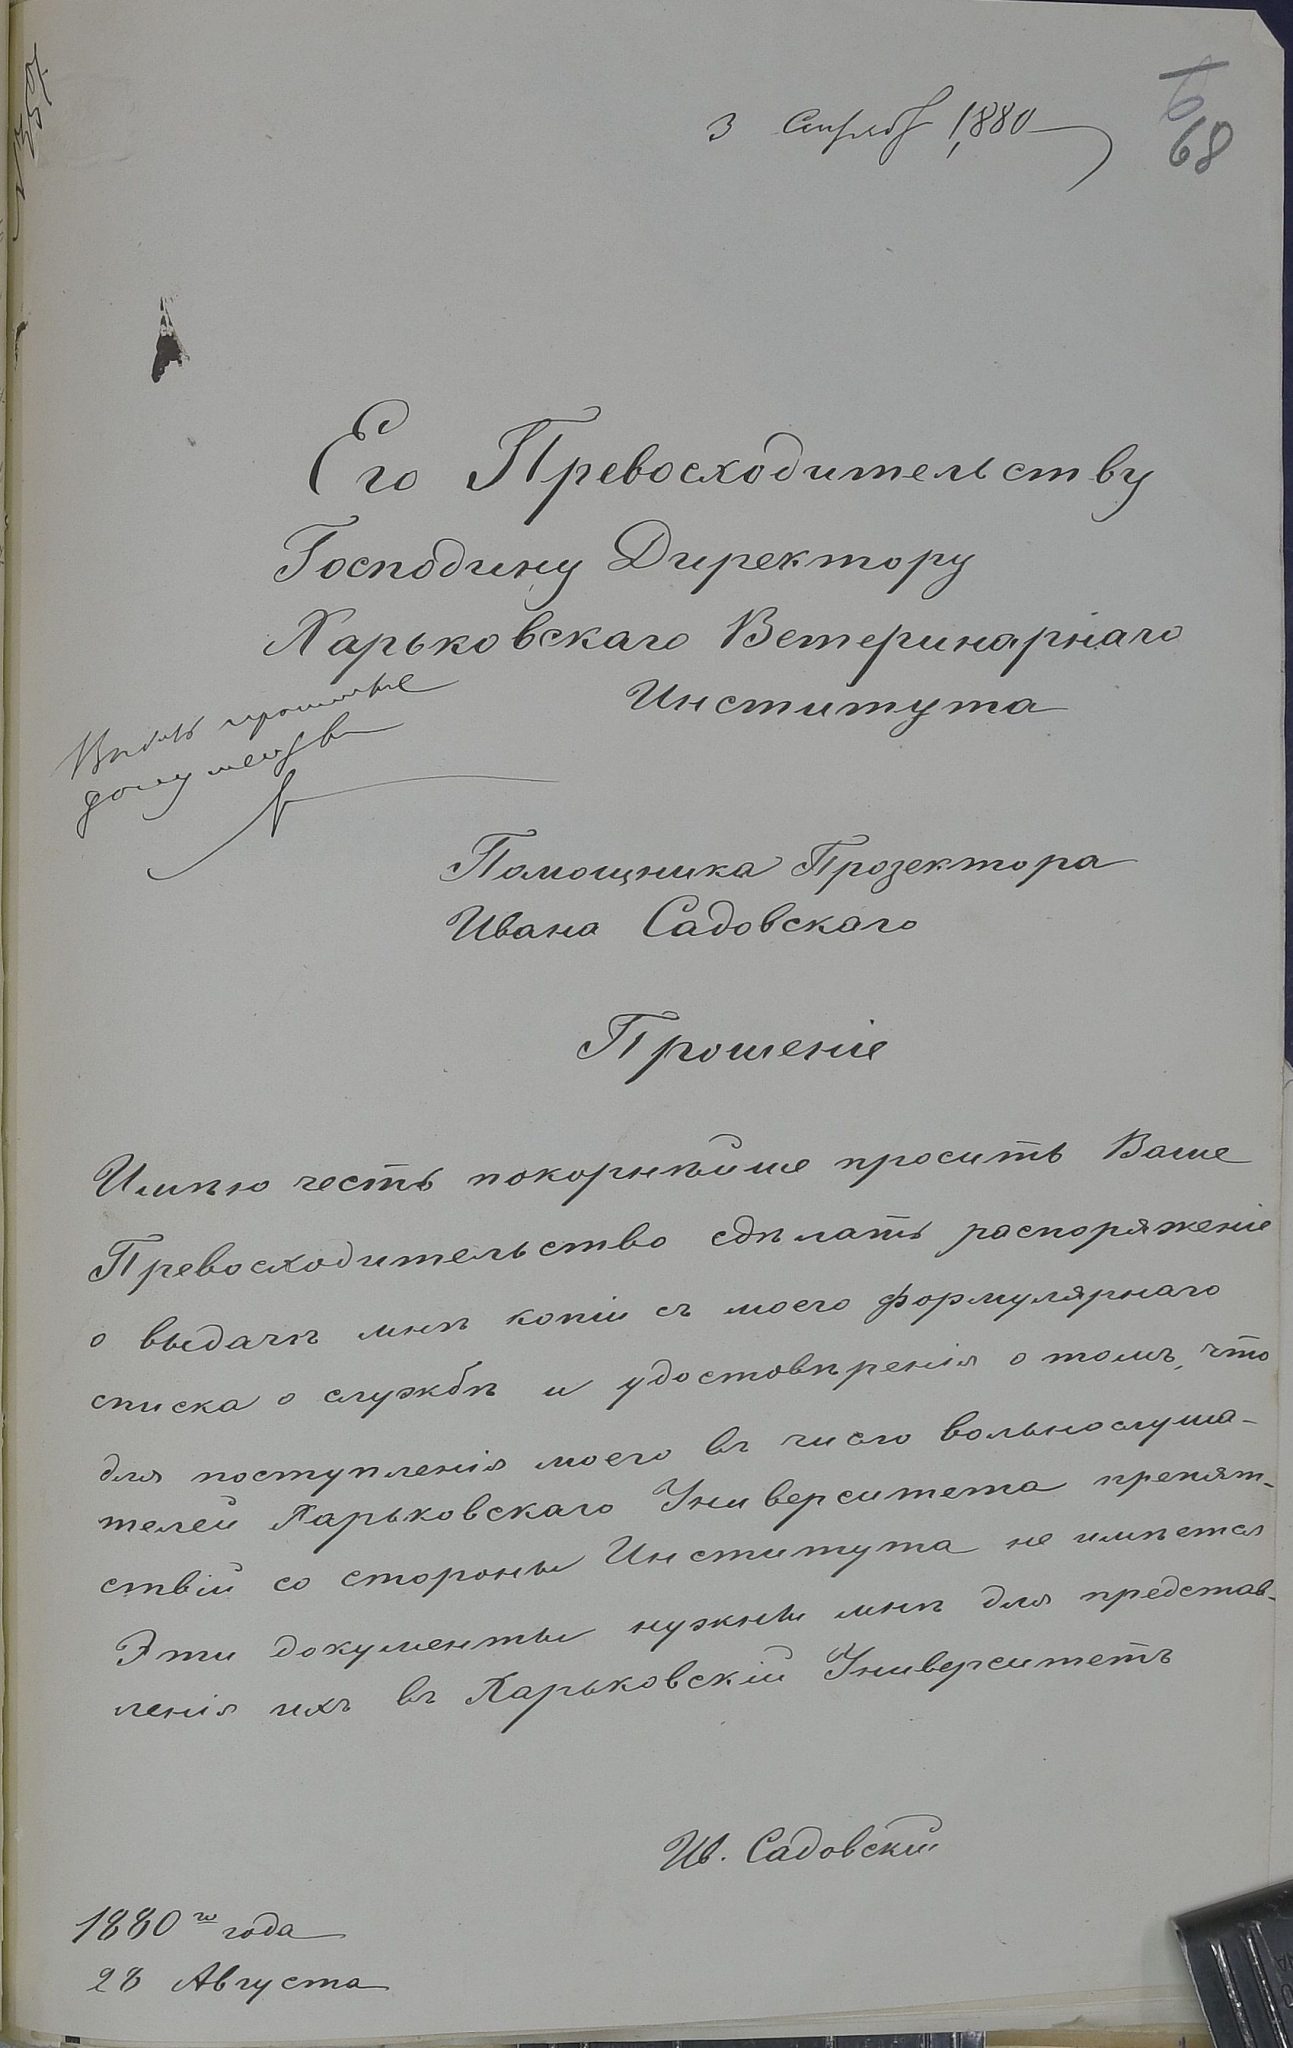 68
3 Сентяб 1880
Его Превосходительству
Господину Директору
Харьковскаго Ветеринарнаго
Института
Выдать просимые
документы
Помощника Прозектора
Ивана Садовскаго
Прошеніе
Имѣю честь покорнѣйше просить Ваше
Превосходительство сдѣлать распоряженіе
о выдачѣ мнѣ копіи съ моего формулярнаго
списка о службѣ и удостовѣренія о томъ, что
для поступленія моего въ число вольнослуша-
телей Харьковскаго Университета препят-
ствій со стороны Института не имѣется
Эти документы нужны мнѣ для представ-
ленія ихъ въ Харьковскій Университетъ
Ив. Садовскій
1880го года
28 Августа